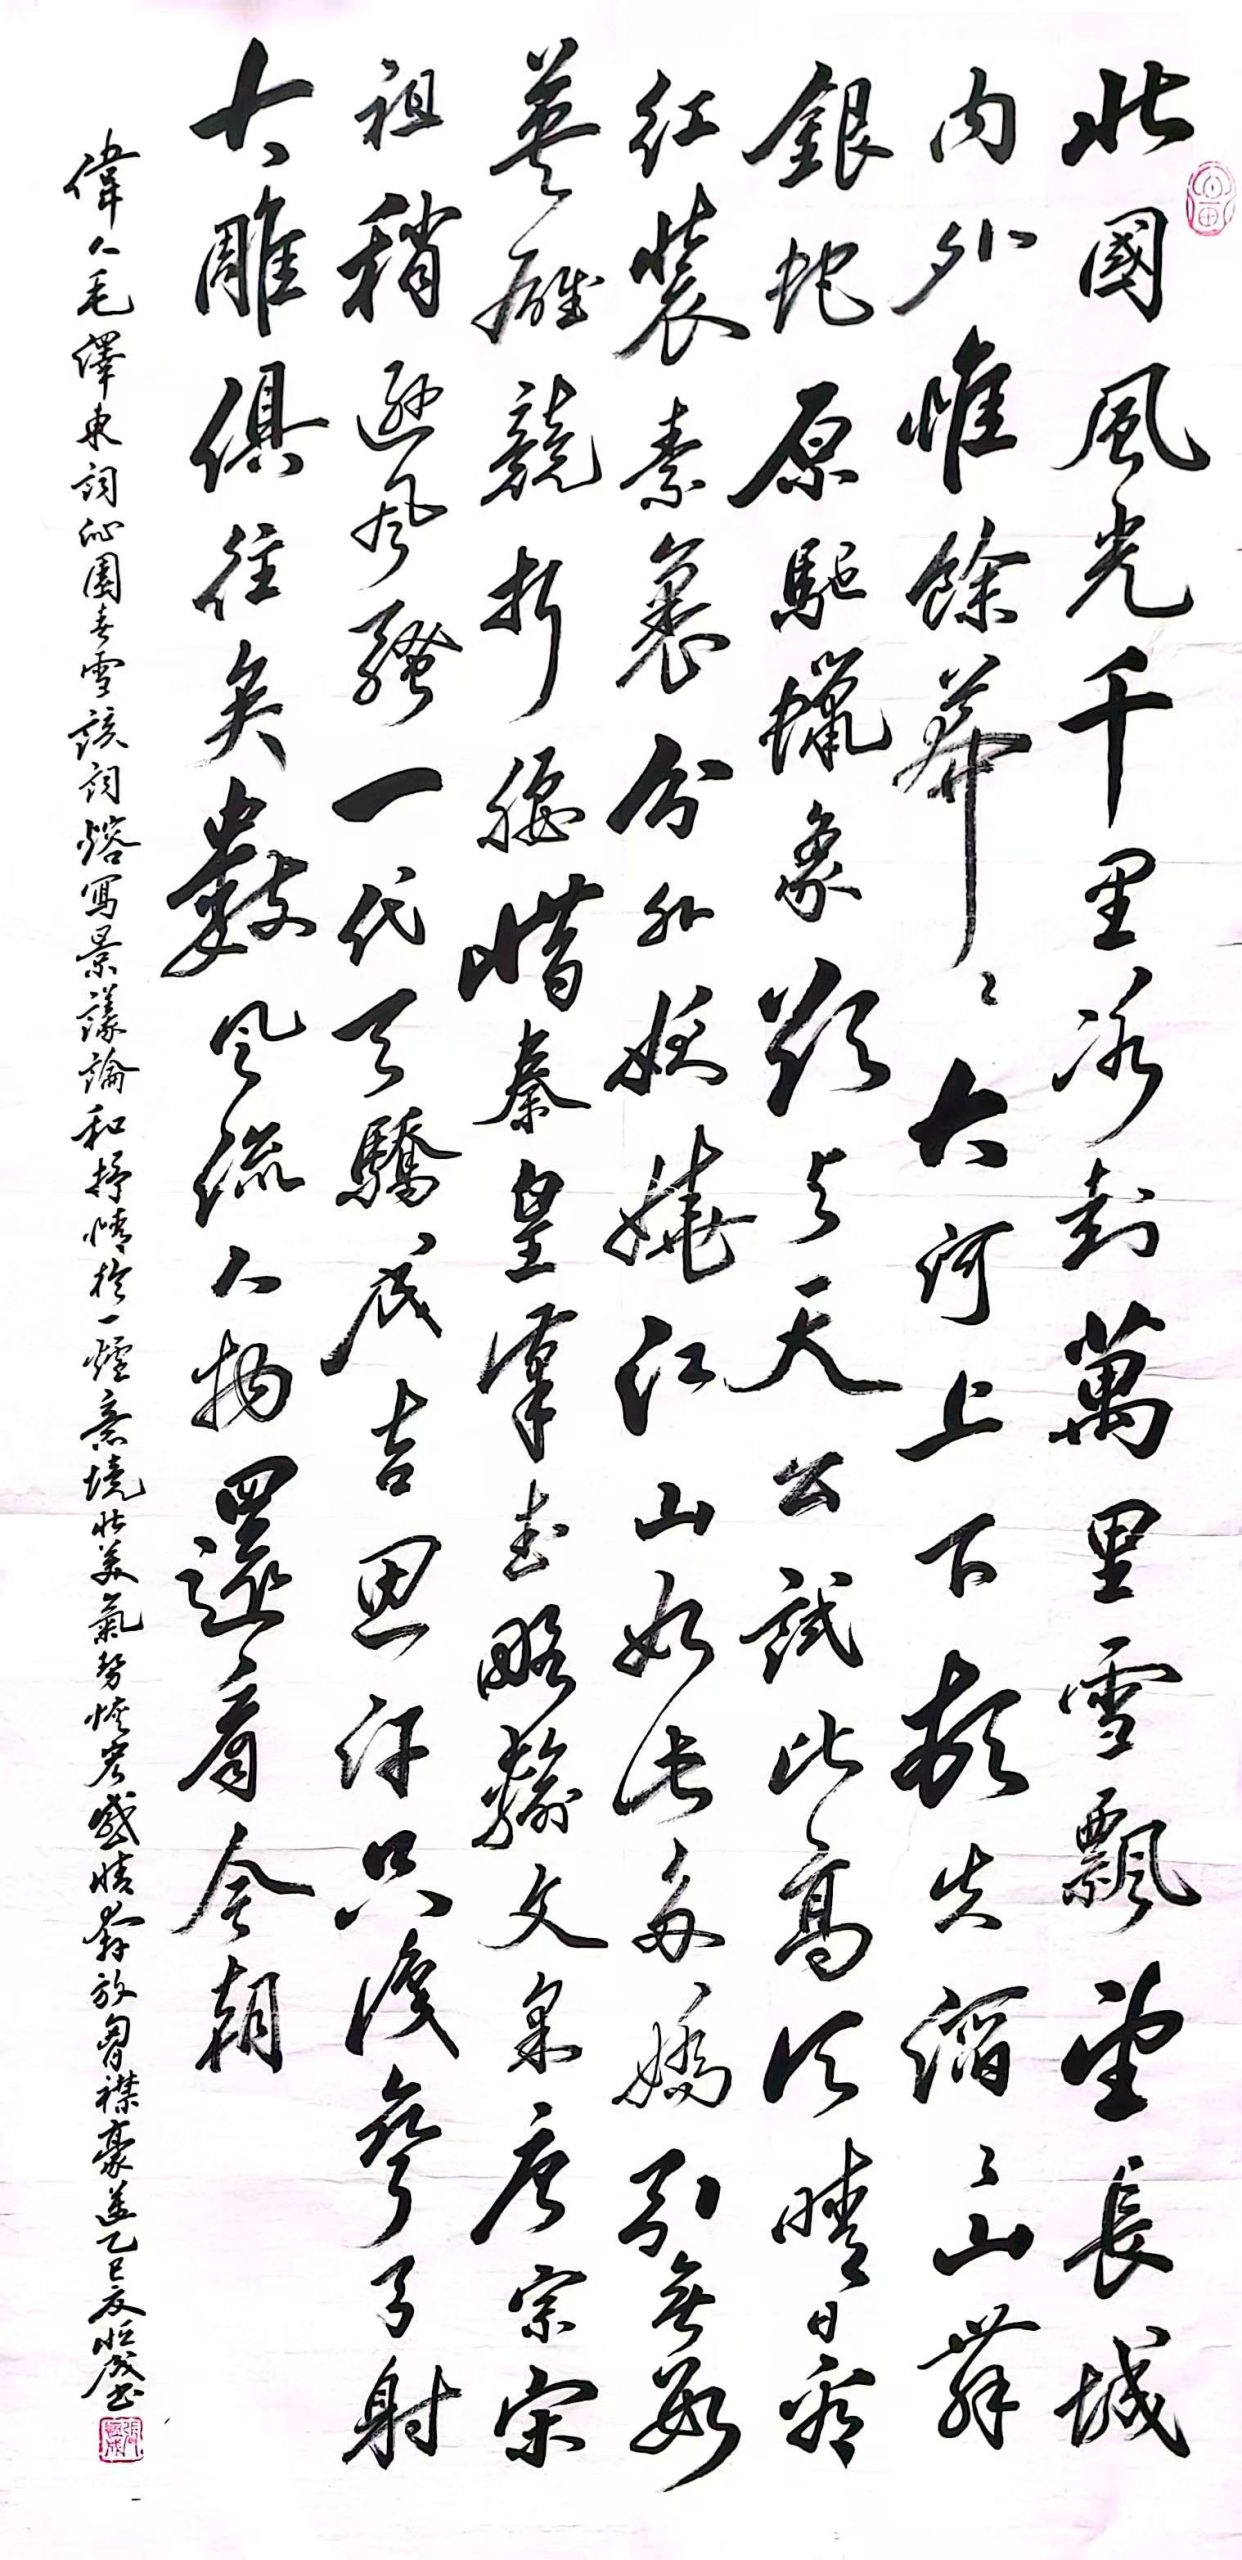 北國風光千里冰封萬里雪飄望長城
内外惟餘莽〻大河上下頓失滔〻山舞
銀蛇原馳蠟象欲与天公試比高須晴日看
紅裝素裹分外妖嬈江山如此多嬌引無數
英雄競折腰惜秦皇漢武略輸文采唐宗宋
祖稍遜风騷一代天驕成吉思汗只識彎弓射
大雕俱往矣數风流人物還看今朝
偉人毛澤東詞沁園春雪該詞熔寫景議論和抒情於一爐意境壯美氣势恢宏感情奔放胸襟豪邁乙巳夏恒成書